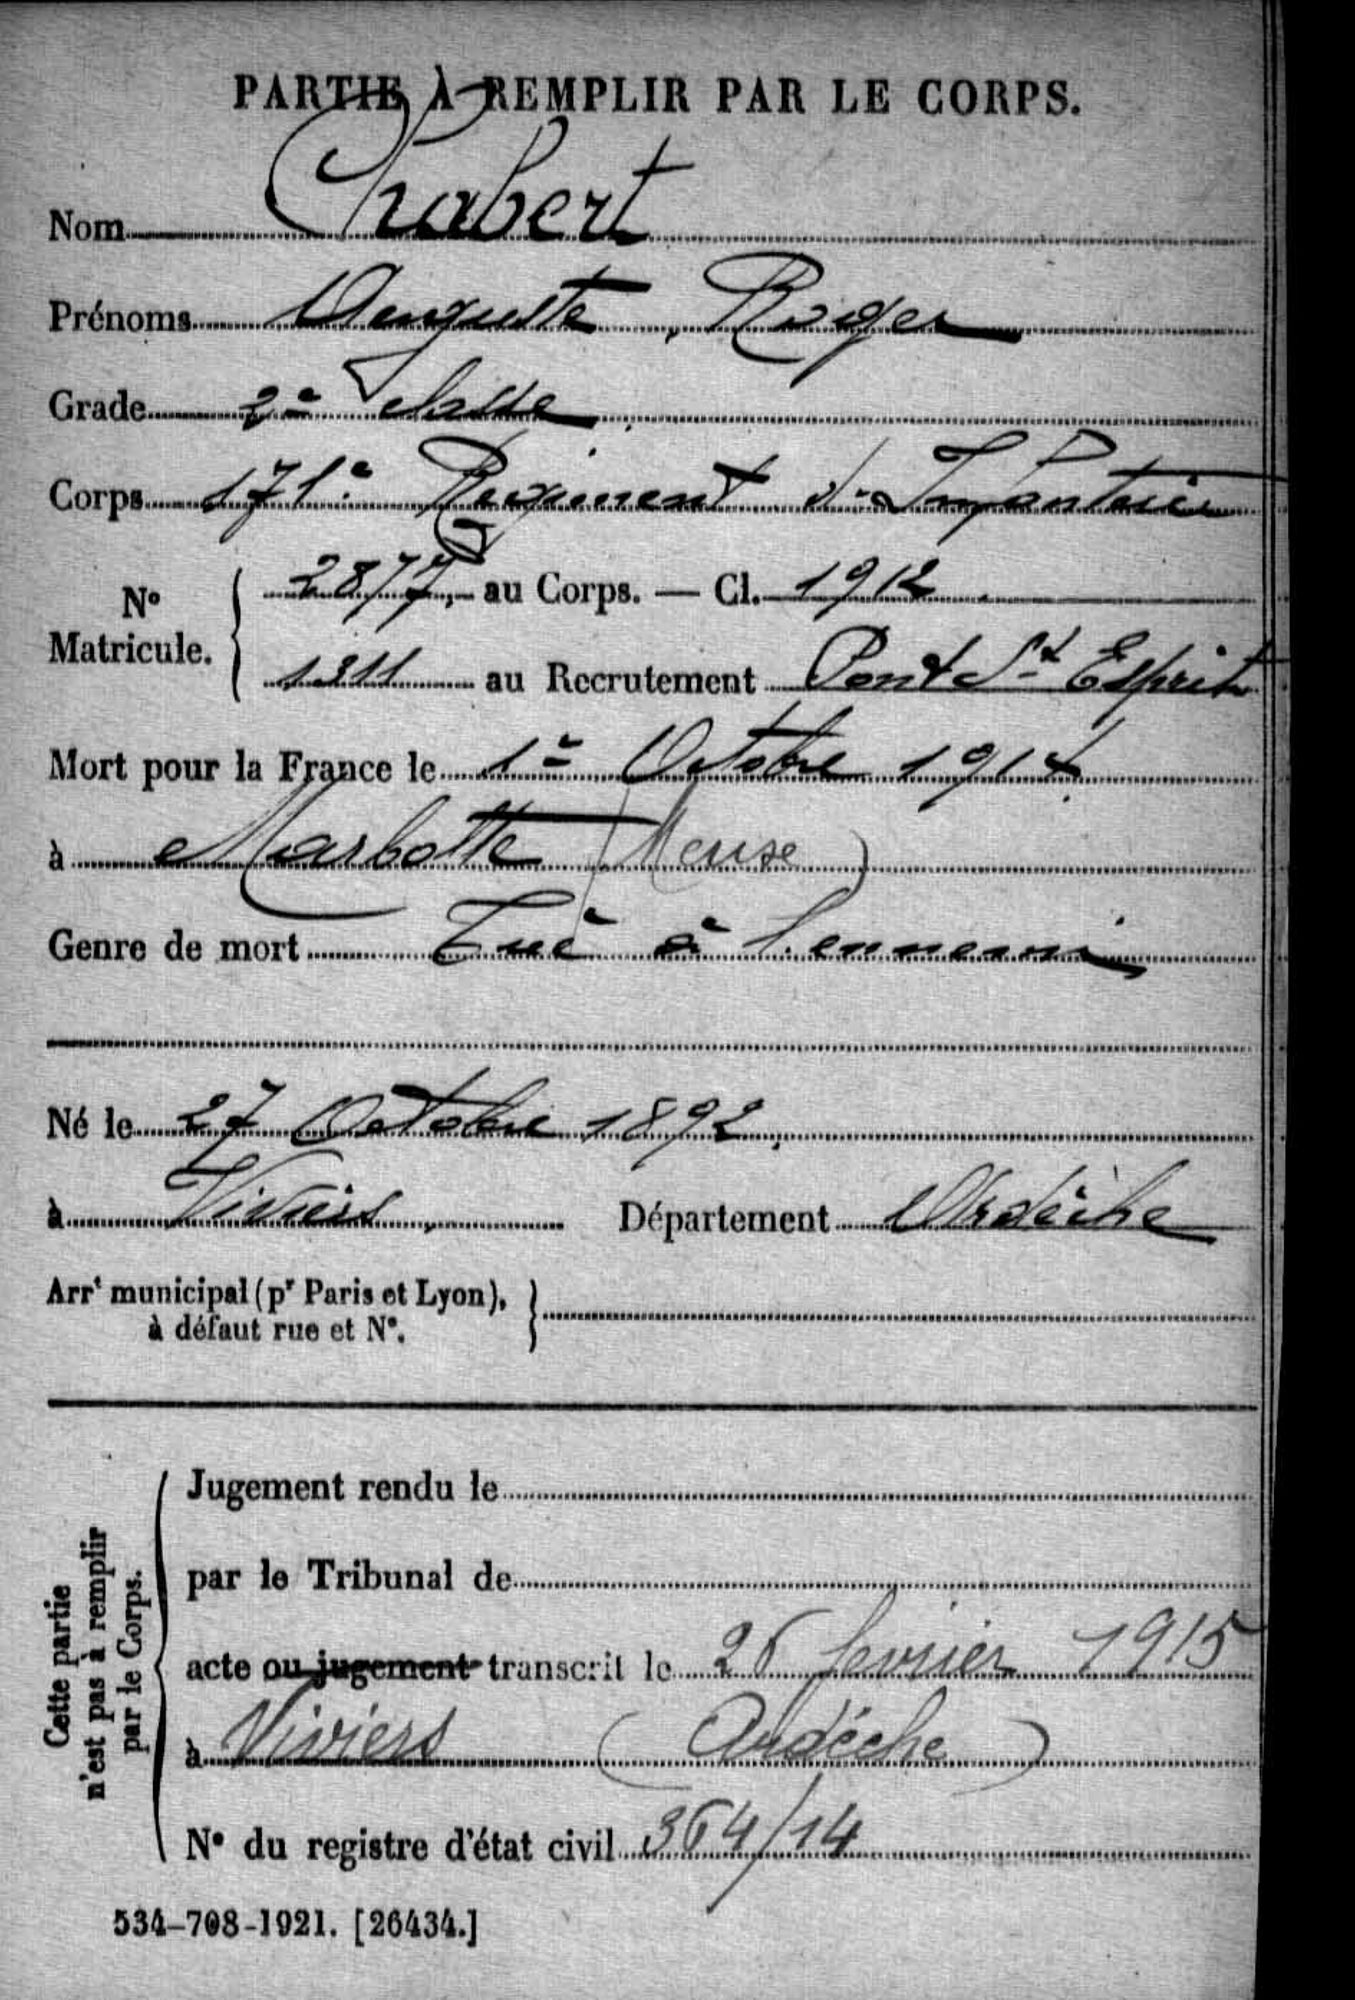 PARTIE À REMPLIR PAR LE CORPS.
Nom Chabert
Prénoms Auguste, Roger
Grade 2e classe
Corps 171e Régiment d'Infanterie
No Matricule. { 2877, au Corps. — Cl. 1912.
1311 au Recrutement Pont St Esprit
Mort pour la France le 1er Octobre 1914.
à Marbotte (Meuse)
Genre de mort Tué à l'ennemi
Né le 27 Octobre 1892.
à Viviers, Département Ardèche
Arrt municipal (pr Paris et Lyon), }
à défaut rue et No.
Cette partie
n'est pas à remplir
par le Corps.
Jugement rendu le
par le Tribunal de
acte ou jugement transcrit le février 1915
à Viviers (Ardéche)
No du registre d'état civil 364/14
534-708-1921. [26434.]